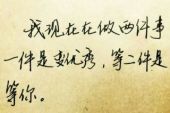 我现在在做两件事
一件是变优秀，第二件是
等你。